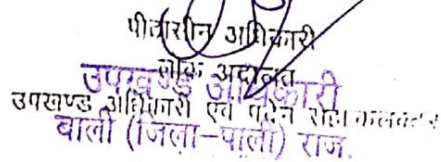 पीठासीन अधिकारी
लोक अदालत
उपखण्ड अधिकारी
उपखण्ड अधिकारी एवं पदेन सहा. कलक्टर
बाली (जिला-पाली) राज.